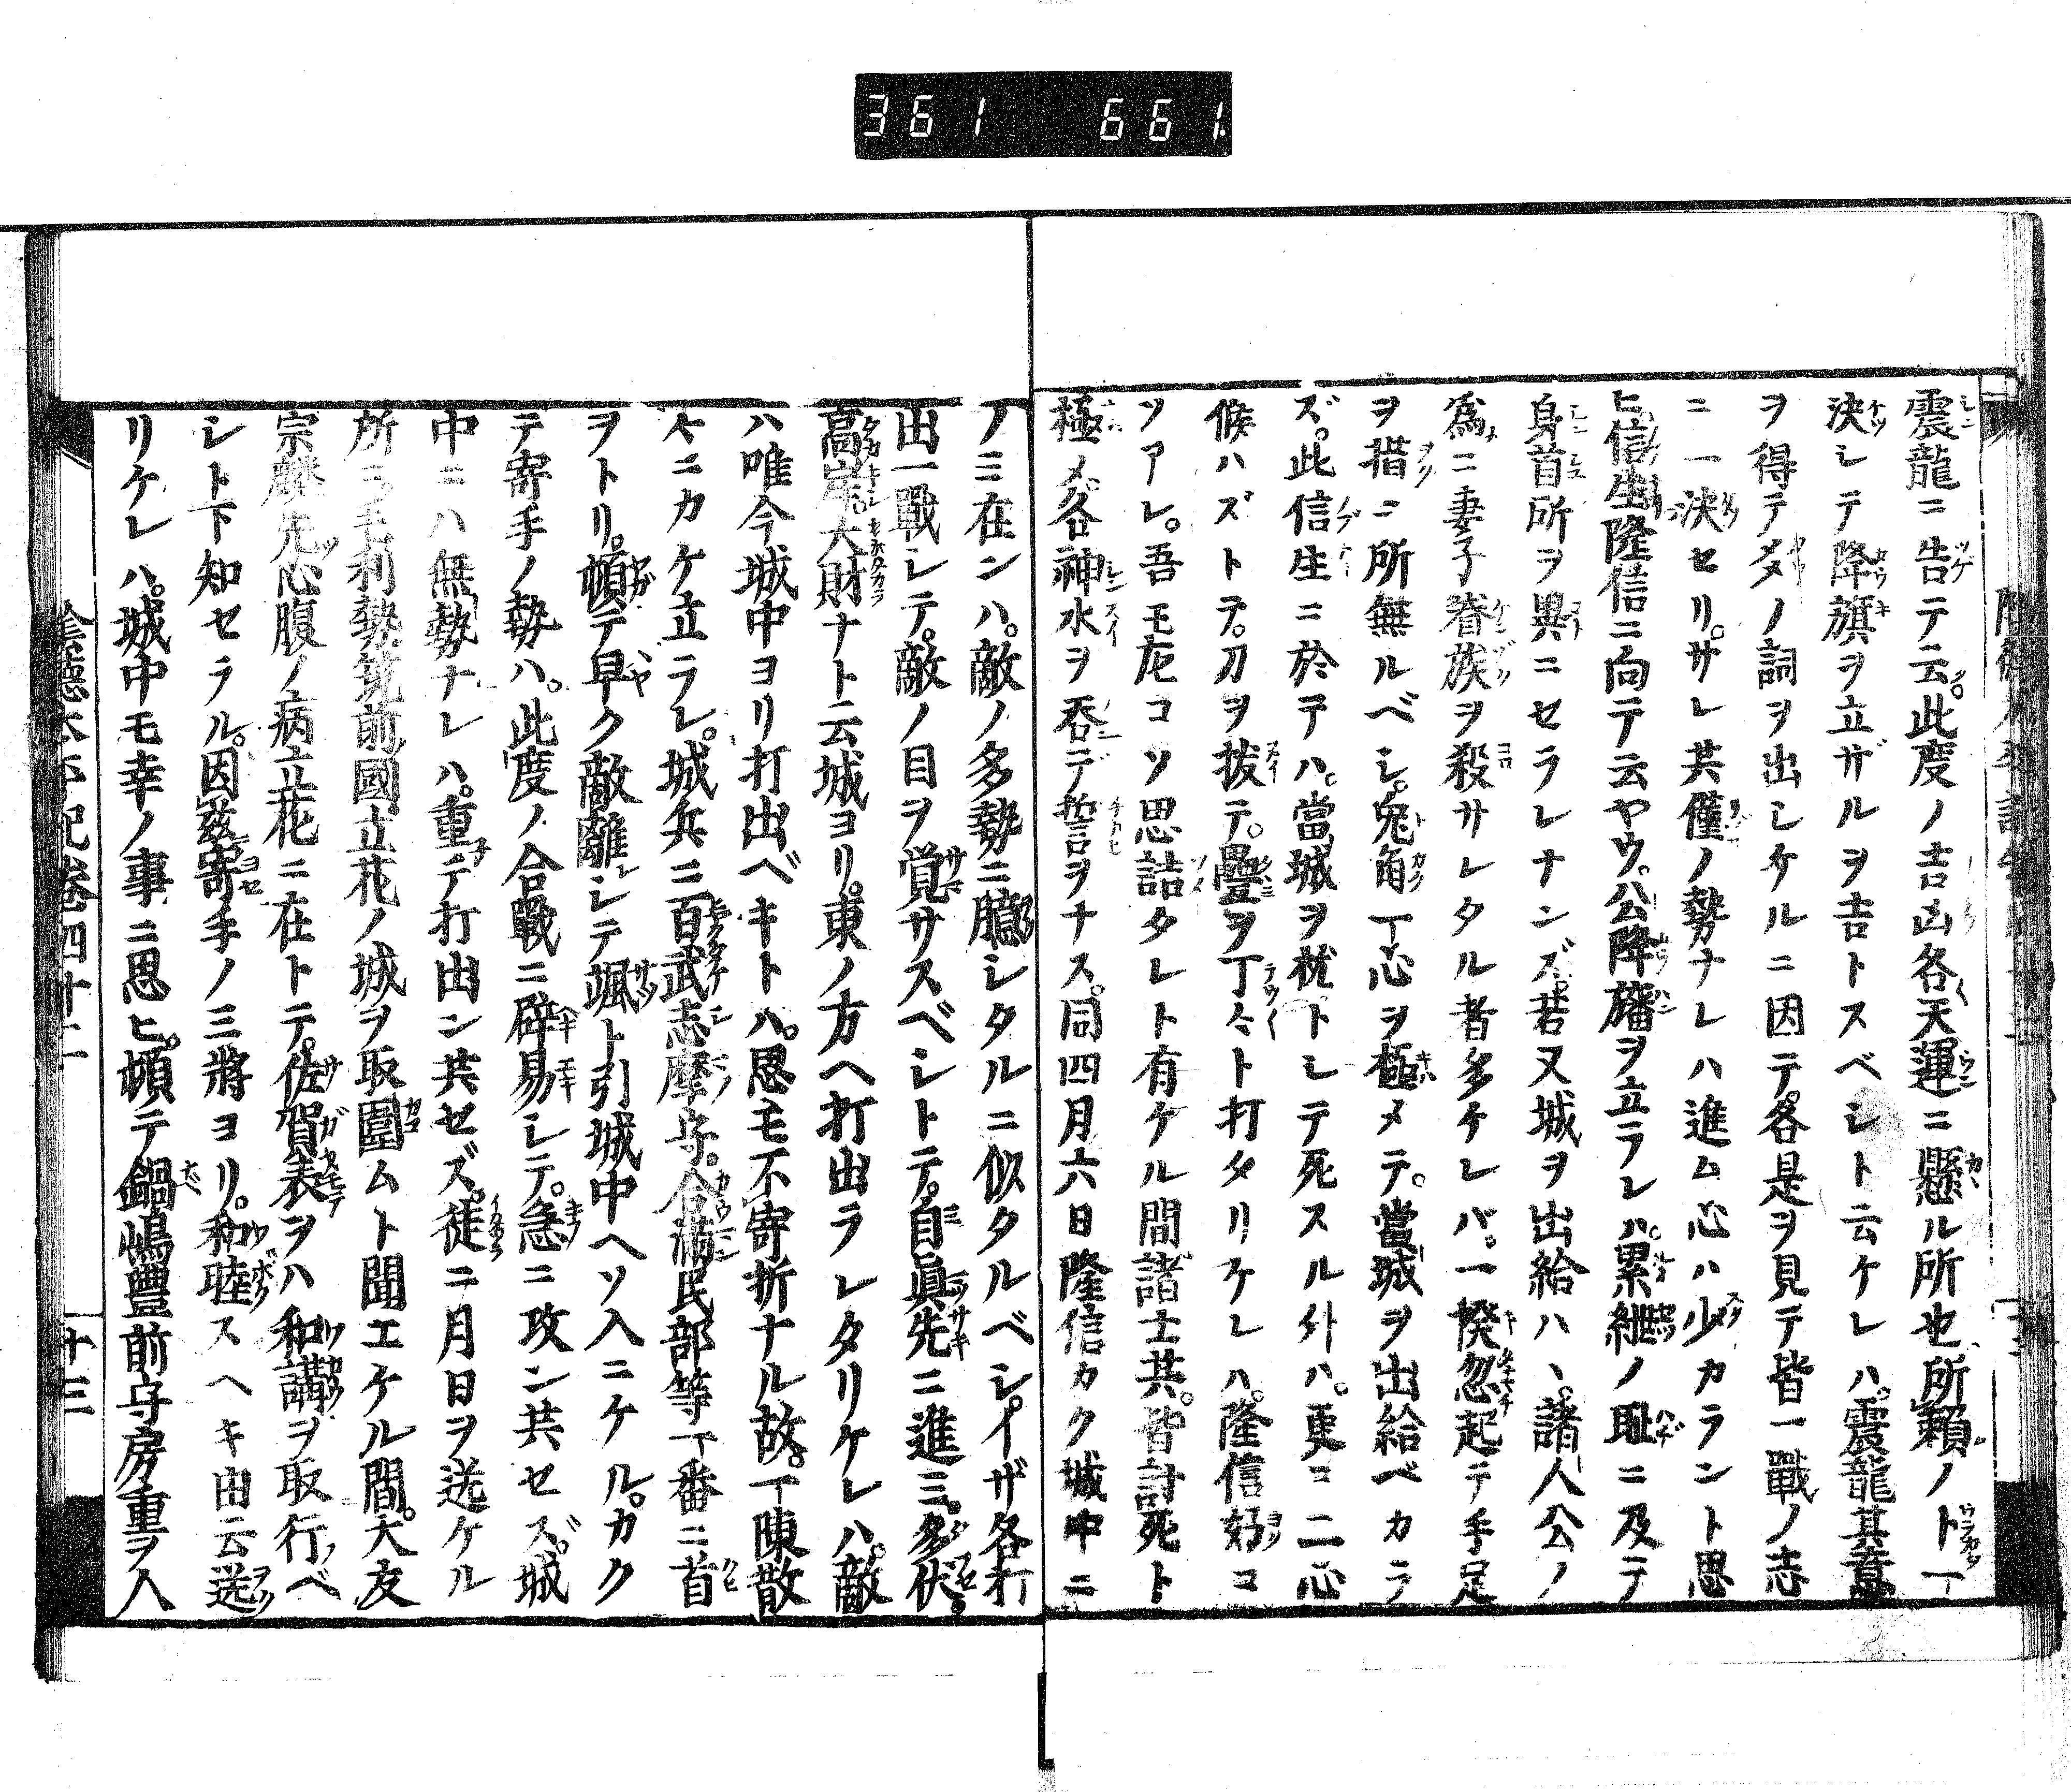 361 661
震龍ニ告テ云。此度ノ吉凶各天運ニ懸ル所也、所頼ノト一
決シテ降旗ヲ立ザルヲ吉トスベシト云ケレハ。震龍其意
ヲ得テ多ノ詞ヲ出シケルニ因テ。各是ヲ見テ皆一戰ノ志
ニ一決セリ。サレ共僅ノ勢ナレハ進ム心ハ少カラント思
ヒ信生隆信ニ向テ云ヤウ。公降旛ヲ立ラレハ。累紲ノ耻ニ及テ
身首所ヲ異ニセラレナンズ。若又城ヲ出給ハヽ。諸人公ノ
爲ニ妻子眷族ヲ殺サレタル者多ケレバ。一揆忽起テ手足
ヲ措ニ所無ルベシ。兎角一心ヲ極メテ。當城ヲ出給ベカラ
ズ。此信生ニ於テハ。當城ヲ枕トシテ死スル外ハ。更ニ二心
候ハズトテ。刀ヲ拔テ。疊ヲ丁々ト打タリケレハ。隆信好コ
ソアレ。吾モ左コソ思詰タレト有ケル間諸士共。皆討死ト
極メ。各神水ヲ呑デ誓言ヲナス。同四月六日隆信カク城中ニ
ノミ在ンハ。敵ノ多勢ニ臆シタルニ似タルベシ。イザ各打
出一戰シテ。敵ノ目ヲ覚サスベシトテ。自眞先ニ進ミ。多伏
高岸大財ナト云城ヨリ。東ノ方ヘ打出ラレタリケレハ。敵
ハ唯今城中ヨリ打出ベキトハ。思モ不寄折ナル故。一陳散
々ニカケ立ラレ。城兵ニ百武志摩守。合満民部等一番ニ首
ヲトリ。頓テ早ク敵離シテ颯ト引城中ヘソ入ニケル。カク
テ寄手ノ勢ハ。此度ノ合戰ニ辟易シテ。急ニ攻ン共セズ。城
中ニハ無勢ナレハ。重テ打出ン共セズ。徒ニ月日ヲ送ケル
所ニ毛利勢筑前國立花ノ城ヲ取圍ムト聞エケル間。大友
宗麟先心腹ノ病立花ニ在トテ。佐賀表ヲハ和講ヲ取行ベ
シト下知セラル。因茲寄手ノ三將ヨリ。和睦スヘキ由云送
リケレハ。城中モ幸ノ事ニ思ヒ。頓テ鍋嶋豊前守房重ヲ人
陰德太平記卷四十二
十三